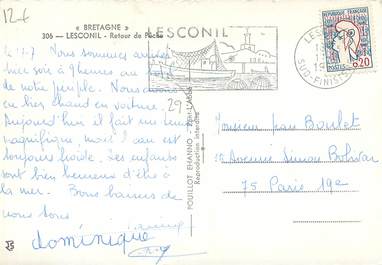 12 €
« BRETAGNE »
306 — LESCONIL - Retour de Pêche
LESCONIL
LES
SUD-FINIST
REPUBLIQUE FRANÇAISE
0,20
POSTES
Nous sommes
hier soir à 9 heures au
de notre périple. Nous
eu bien chaud en voiture.
29
Aujourd'hui il fait un temps
magnifique, mais l'eau est
toujours froide. Les enfants
sont bien heureux d'être à
la mer. Bons baisers de
nous tous
dominique
POUILLOT EHANNO
Reproduction interdite
Monsieur Jean Boulet
15 Avenue Simon Bolivar
75 Paris 19e